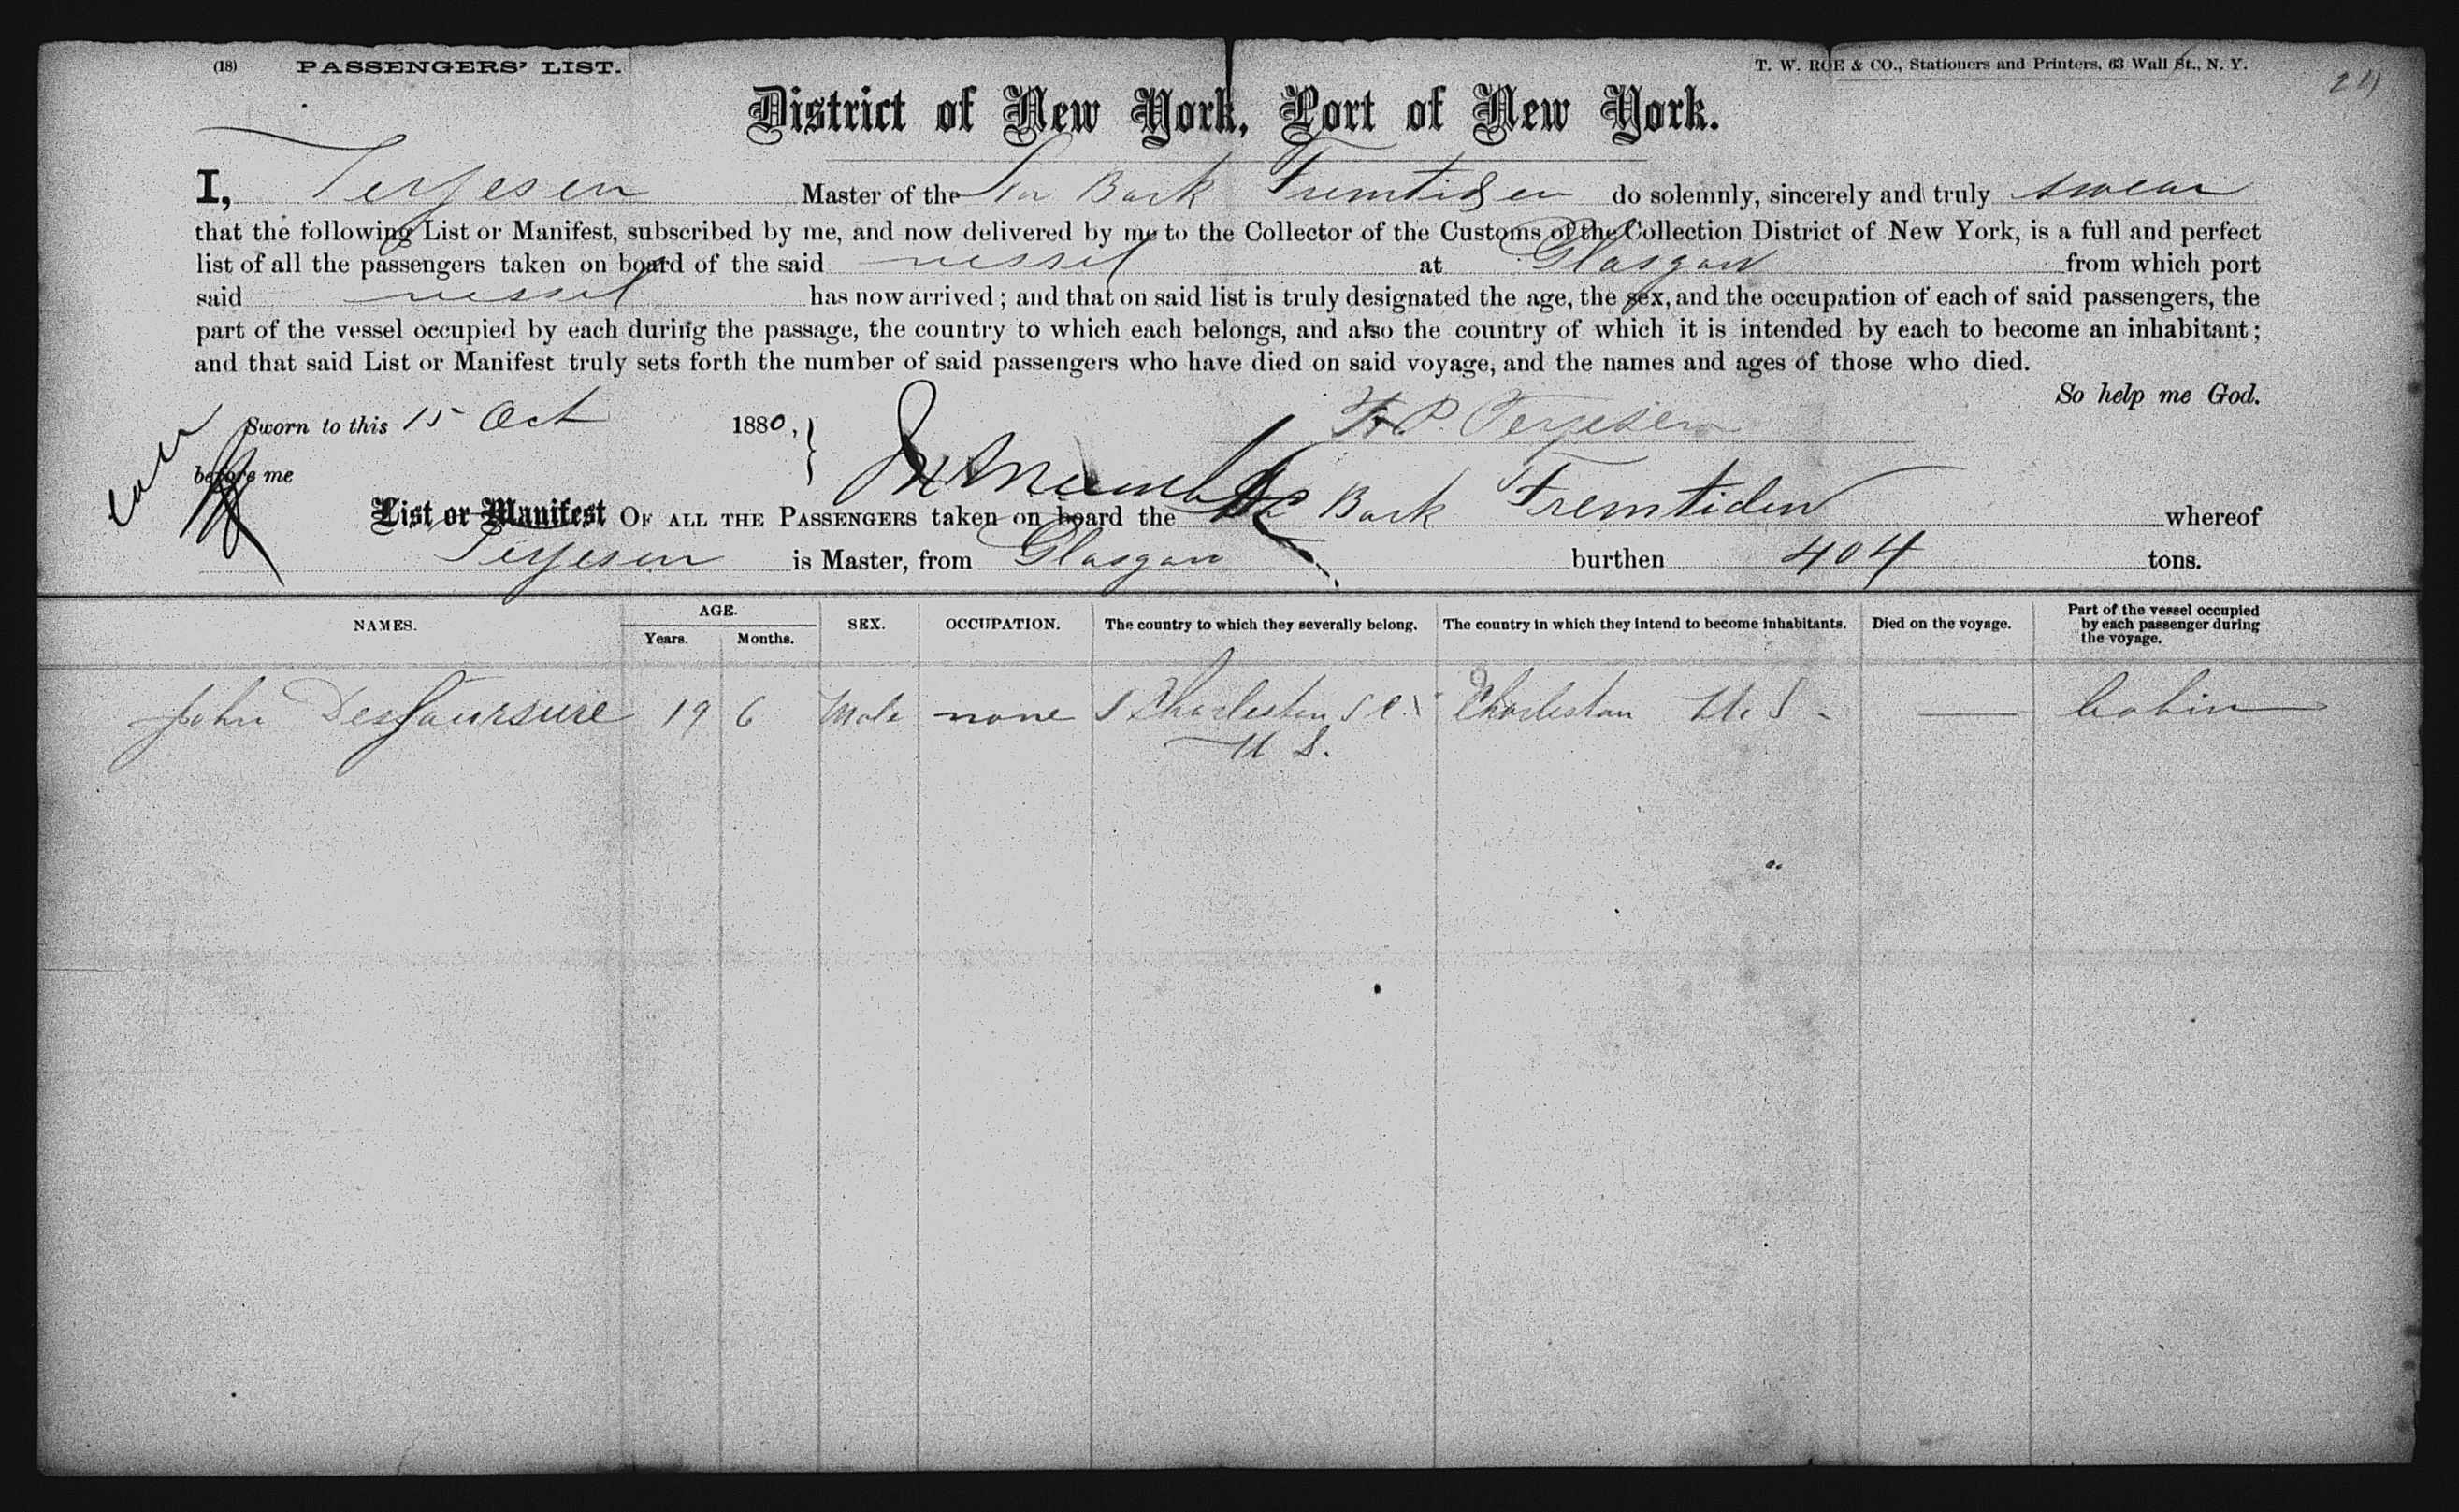 (18) PASSENGERS' LIST. T. W. ROE & CO., Stationers and Printers, 63 Wall St., N. Y.
District of New York, Port of New York.
I, Terjesen Master of the Nor Bark Fremtiden do solemnly, sincerely and truly swear
that the following List or Manifest, subscribed by me, and now delivered by me to the Collector of the Customs of the Collection District of New York, is a full and perfect
list of all the passengers taken on board of the said vessel at Glasgow from which port
said vessel has now arrived; and that on said list is truly designated the age, the sex, and the occupation of each of said passengers, the
part of the vessel occupied by each during the passage, the country to which each belongs, and also the country of which it is intended by each to become an inhabitant;
and that said List or Manifest truly sets forth the number of said passengers who have died on said voyage, and the names and ages of those who died.
So help me God.
Sworn to this 15 Oct 1880, P. Terjesen
before me
List or Manifest OF ALL THE PASSENGERS taken on board the Bark Fremtiden whereof
Terjesen is Master, from Glasgow burthen 404 tons.
NAMES. AGE. Years. Months. SEX. OCCUPATION. The country to which they severally belong. The country in which they intend to become inhabitants. Died on the voyage. Part of the vessel occupied by each passenger during the voyage.
John DesSaursure 19 6 Male none Charleston S C. Charleston U. S - — Cabin
U S.